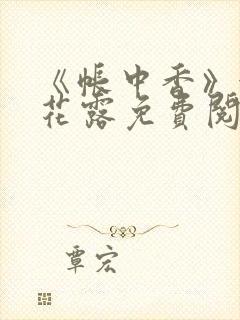 《帐中香》
花露免费阅
覃宏